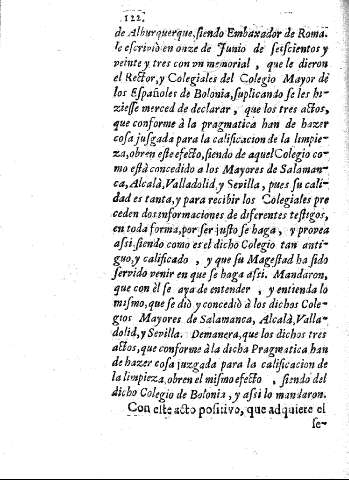 122.
de Alburquerque, siendo Embaxador de Roma.
le escrivió en onze de Junio de seiscientos y
veinte y tres con vn memorial, que le dieron
el Rector, y Colegiales del Colegio Mayor de
los Españoles de Bolonia, suplicando se les hi-
ziesse merced de declarar, que los tres actos,
que conforme à la pragmatica han de hazer
cosa juzgada para la calificacion de la limpie-
za, obren este efecto, siendo de aquel Colegio co-
mo està concedido a los Mayores de Salaman-
ca, Alcalà, Valladolid, y Sevilla, pues su cali-
dad es tanta, y para recibir los Colegiales pre
ceden dos informaciones de diferentes testigos,
en toda forma, por ser justo se haga, y provea
assi, siendo como es el dicho Colegio tan anti-
guo, y calificado, y que su Magestad ha sido
servido venir en que se haga assi. Mandaron,
que con èl se aya de entender, y entienda lo
mismo, que se diò y concediò à los dichos Cole-
gios Mayores de Salamanca, Alcalà, Valla-
dolid, y Sevilla. Demanera, que los dichos tres
actos, que conforme à la dicha Pragmatica han
de hazer cosa juzgada para la calificacion de
la limpieza, obren el mismo efecto, siendo del
dicho Colegio de Bolonia, y assi lo mandaron.
Con este acto positivo, que adquiere el
se-